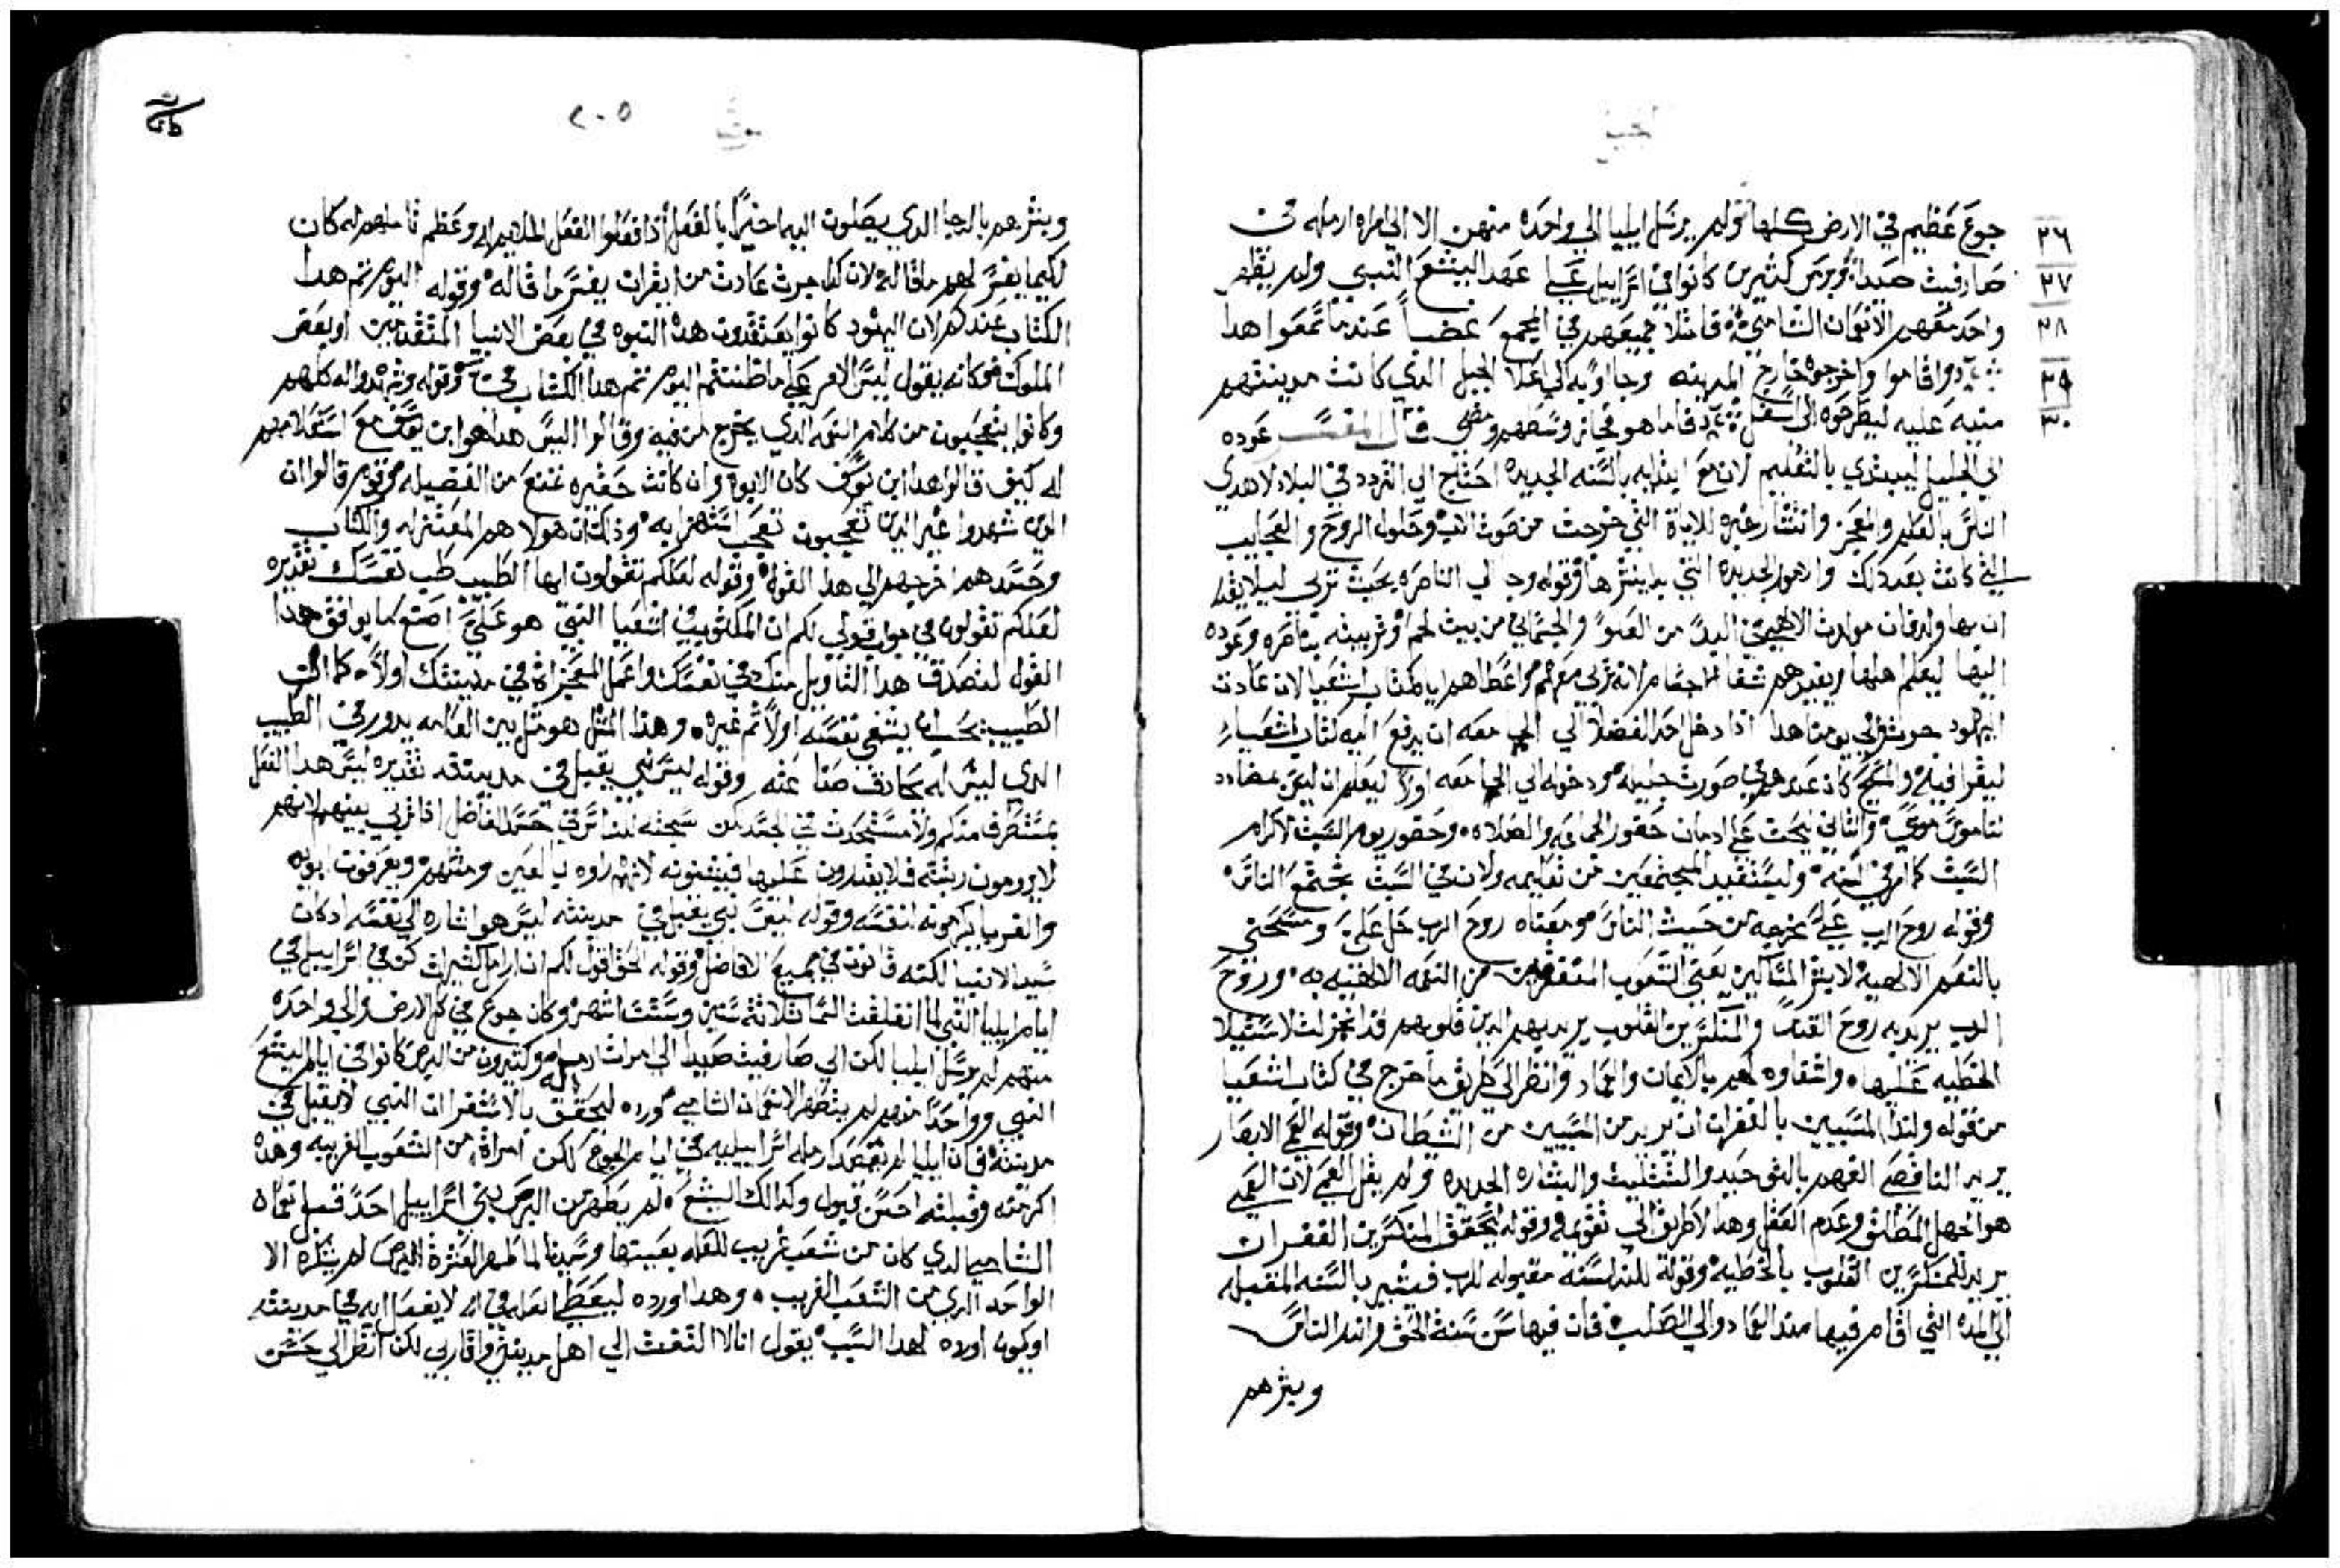 جوع عظيم في الارض كلها ولم يرسل ايليا الي واحده منهن الا الي امراه ارمله في
٢٦
صارفيث صيدا وبرص كثيرين كانوا في اسراييل علي عهد اليشع النبي ولم يطهر
٢٧
واحد منهم الا نعمان الشامي فامتلا جميعهم في المجمع غضباً عندما سمعوا هدا
٢٨
وقاموا واخرجوه خارج المدينه وجاوا به الي اعلا الجبل الذي كانت مدينتهم
٢٩
مبنيه عليه ليطرحوه الي اسفل فاما هو فجاز وسطهم ومضي قال المفسر عوده
٣٠
الي الجليل ليبتدي بالتعليم لان مع ابتدايه بالسنه الجديده احتاج الي التردد في البلاد لاهدي
الناس بالعلم والمعجز وانتشار خبره للاياة التي خرجت من صوت الاب وحلول الروح والعجايب
التي كانت بعد ذلك والامور الجديده التي بدا ينشرها وقوله وجا الي الناصره بحيث تربي ليلا يظن
ان بها ولد فان مولده الالهيه من العلو والجسماني من بيت لحم وتربيته بناصره وعوده
اليها ليعلم اهلها ويفيدهم شفا الاجسام لانه تربي معهم واعطاهم اياه كتاب اشعيا لان عادت
اليهود جرت الي يومنا هدا اذا دخل احد الفضلا الي الجامعه ان يدفع اليه كتاب اشعيا
ليقرا فيه والمسيح كان عندهم في صورت جليله ودخوله الي الجامعه اولاً ليعلم ان ليس مضادد
لناموس موسي والثاني ليحث علي ادمان حضور الجماعه والصلاه وحضور يوم السبت لاكرام
السبت كما امر في السنه وليستفيد المجتمعين من تعليمه ولان في السبت تجتمع الناس
وقوله روح الرب علي يخرجه من حيث الناس ومعناه روح الرب حل علي ومسحني
بالنعم الالاهيه لابشر المساكين يعني الشعوب المتفقرين من النعمه الالاهيه به وروح
الرب يريد به روح القدس والمنكسرين القلوب يريد بهم الدين قلوبهم قد انخزلت لاستيلا
الخطيه عليها واشفاوه لهم بالايمان والعماد وانظر الي طريق ما خرج في كتاب اشعيا
من قوله ولندا المسبيين بالغفران ان يريد من المسبيين من الشيطان وقوله العمي الابصار
يريد الناقصي الفهم بالتوحيد والتثليث والبشاره الجديده ولم يقل العمي لان العمي
هو الجهل المطلق وعدم العقل وهدا لا طريق الي تقويمه وقوله لتحقق المنكسرين الغفران
يريد للمنكسرين القلوب بالخطيه وقوله للندا سنه مقبوله للرب فيشير بالسنه المقبوله
الي المده التي اقام فيها مند العماد والي الصلب فان فيها سن سنة الحق واندر الناس
وبشرهم
٢٠٥
وبشرهم بالرجا الدي يصلون اليه اخيراً بالفعل اذا فعلوا الفعل الملايم له وعظم تاملهم له كان
لكيما يفسر لهم ما قاله لان كدا جرت عادت من يقرا ان يفسر ما قاله وقوله اليوم تم هدا
الكتاب عندكم لان اليهود كانوا يعتقدون هده النبوه في بعض الانبيا المتقدمين او بعض
الملوك فكانه يقول ليس الامر علي ما ظننتم اليوم تم هدا الكتاب في وقوله وشهدوا له كلهم
وكانوا يتعجبون من كلام النعمه الدي يخرج من فيه وقالوا اليس هدا هو ابن يوسف مع استعلامهم
له كيف قالوا هدا ابن يوسف كان الابوه وان كانت حقيره تمنع من الفضيله وقوم قالوا ان
الدين شهدوا غير الدين تعجبون تعجب استهزا به وذلك ان هولا هم المعتزله والكتاب
وحسدهم اخرجهم الي هدا القول وقوله لعلكم تقولون ايها الطبيب طب نفسك تقديره
لعلكم تقولون في جواب قولي لكم ان المكتوب في اشعيا النبي هو علي اصنع كما يوافق هدا
القول لنصدق هدا التاويل منك في نفسك واعمل المعجزاة في مدينتك اولاً كما ان
الطبيب يجب ان يشفي نفسه اولاً ثم غيره وهذا المثل هو مثل بين العامه يدور في الطبيب
الدي ليس له بحادق صنا عنه وقوله ليس نبي يقبل في مدينته تقديره ليس هدا الفعل
بمستطرف منكم ولا مستحدث في الحسد لمن سجنه لمن تربي حسد الفاضل اذا تربي بينهم لانهم
لا يرومون رتبته فلا يقدرون عليها فيبغضونه لانهم راوه بالعين ومنشاهم ويعرفون ابويه
والقربا يكرمونه لنفسه وقوله ليس نبي يقبل في مدينته ليس هو اشاره الي نفسه اد كان
سيد الانبيا لكنه قانون في جميع الافاضل وقوله الحق اقول لكم ان ارامل كثيرات كن في اسراييل في
ايام ايليا النبي لما انغلقت السما ثلاثة سنين وستت اشهر وكان جوع في كل الارض والي واحده
منهم لم يرسل ايليا لكن الي صارفيث صيدا الي امرات ارمله وكثيرون من البرص كانوا في ايام اليشع
النبي وواحداً منهم لم يتطهر الا نعمان الشامي اورده ليحقق بالاستقرا ان النبي لا يقبل في
مدينته فان ايليا لم تعضده ارمله اسراييليه في ايام الجوع لكن امراة من الشعوب الغريبه وهده
اكرمته وقبلته احسن قبول وكدالك اليشع لم يطهر من البرص بني اسراييل احد قبل نعمان
الشامي الدي كان من شعب غريب للعله بعينها وسيدنا لما طهر العشرة البرص لم يشكره الا
الواحد الدي من الشعب الغريب وهدا اورده ليعطي العله في انه لا يفعل ايه في مدينته
او يكون اورده لهدا السبب يقول انا لا التفت الي اهل مدينتي واقاربي لكن انظر الي حسن